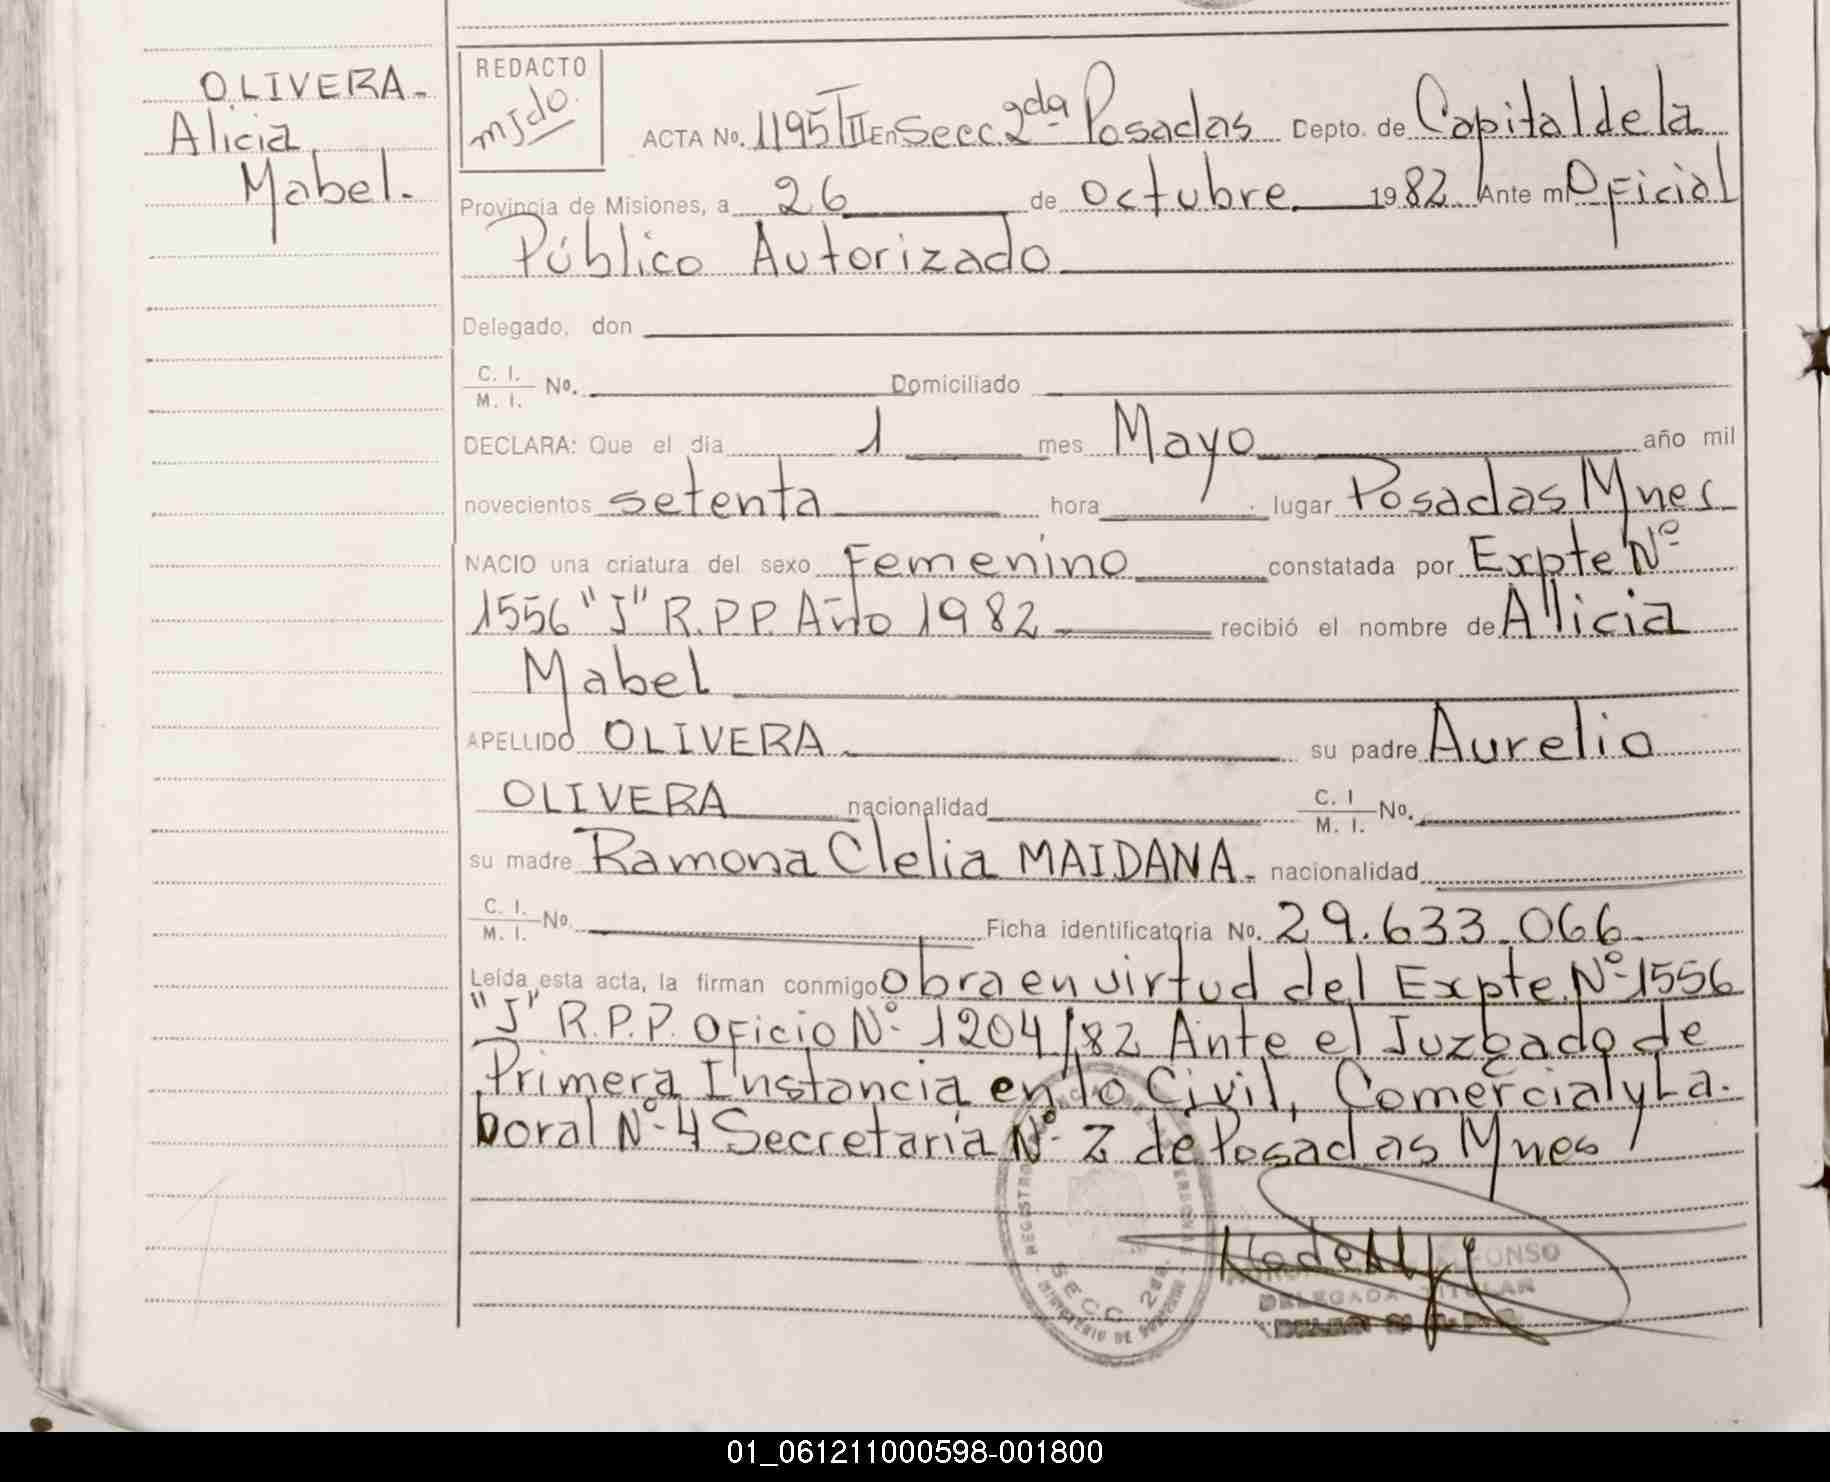 OLIVERA-
Alicia
Mabel.
REDACTO
ACTA No. 1195 TII En Secc. 2da Posadas Depto. de Capital de la
Provincia de Misiones, a 26 de octubre 1982 Ante mi Oficial
Público Autorizado
Delegado, don
C. I. / M. I. No. Domiciliado
DECLARA: Que el día 1 mes Mayo año mil
novecientos setenta hora lugar Posadas Mnes
NACIO una criatura del sexo Femenino constatada por Expte Nº
1556 "J" R.P.P. Año 1982 recibió el nombre de Alicia
Mabel
APELLIDO OLIVERA su padre Aurelio
OLIVERA nacionalidad C. I / M. I. No.
su madre Ramona Clelia MAIDANA. nacionalidad
C. I. / M. I. No. Ficha identificatoria No. 29.633.066.
Leída esta acta, la firman conmigo obra en virtud del Expte. Nº 1556
"J" R.P.P. Oficio Nº 1204/82 Ante el Juzgado de
Primera Instancia en lo Civil, Comercial y La-
boral Nº 4 Secretaría Nº 2 de Posadas Mnes
SECC 2da.
DELEGADA TITULAR
01_061211000598-001800